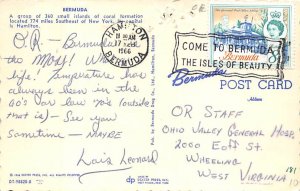 BERMUDA
A group of 360 small islands of coral formation
located 774 miles Southeast of New York, the capital
is Hamilton.
O.R. - Bermuda
the MOST! Wh
life! Temperature has
always been in the
60's or low 70's (outside
that is) - See you
Sometime - MAYBE
Lois Leonard
HAMILTON
AM
17 FEB
1966
BERMUDA
COME TO BERMUDA
THE ISLES OF BEAUTY
Bermuda
Bermuda
POST CARD
Address
OR STAFF
OHIO VALLEY GENERAL HOSP.
2000 EOFF ST.
WHEELING
WEST VIRGINIA
181
dp